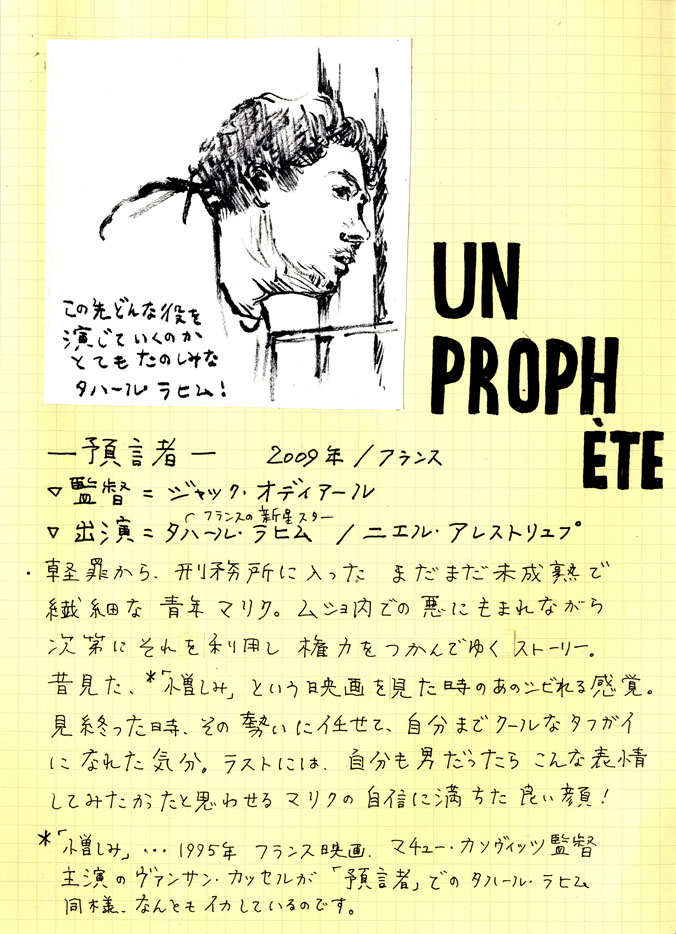 この先どんな役を
演じていくのか
とてもたのしみな
タハール ラヒム!
UN
PROPH
ÈTE
—預言者— 2009年/フランス
▽監督=ジャック・オディアール
フランスの新星スター
▽出演=タハール・ラヒム / ニエル・アレストリュプ
・軽罪から、刑務所に入った まだまだ未成熟で
繊細な 青年 マリク。ムショ内での悪にもまれながら
次第に それを利用し 権力をつかんでゆく ストーリー。
昔見た、*「憎しみ」という映画を見た時のあのシビれる感覚。
見終った時、その勢いに任せて、自分までクールなタフガイ
になれた気分。ラストには、自分も男だったら こんな表情
してみたかったと思わせる マリクの自信に満ちた良い顔!
*「憎しみ」・・・1995年 フランス映画. マチュー・カソヴィッツ監督
主演のヴァンサン・カッセルが「預言者」でのタハール・ラヒム
同様、なんともイカしているのです。